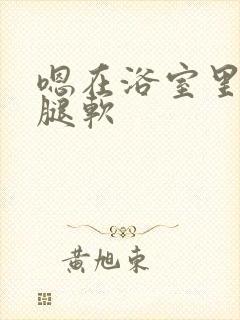 嗯在浴室里
腿軟
黃旭東